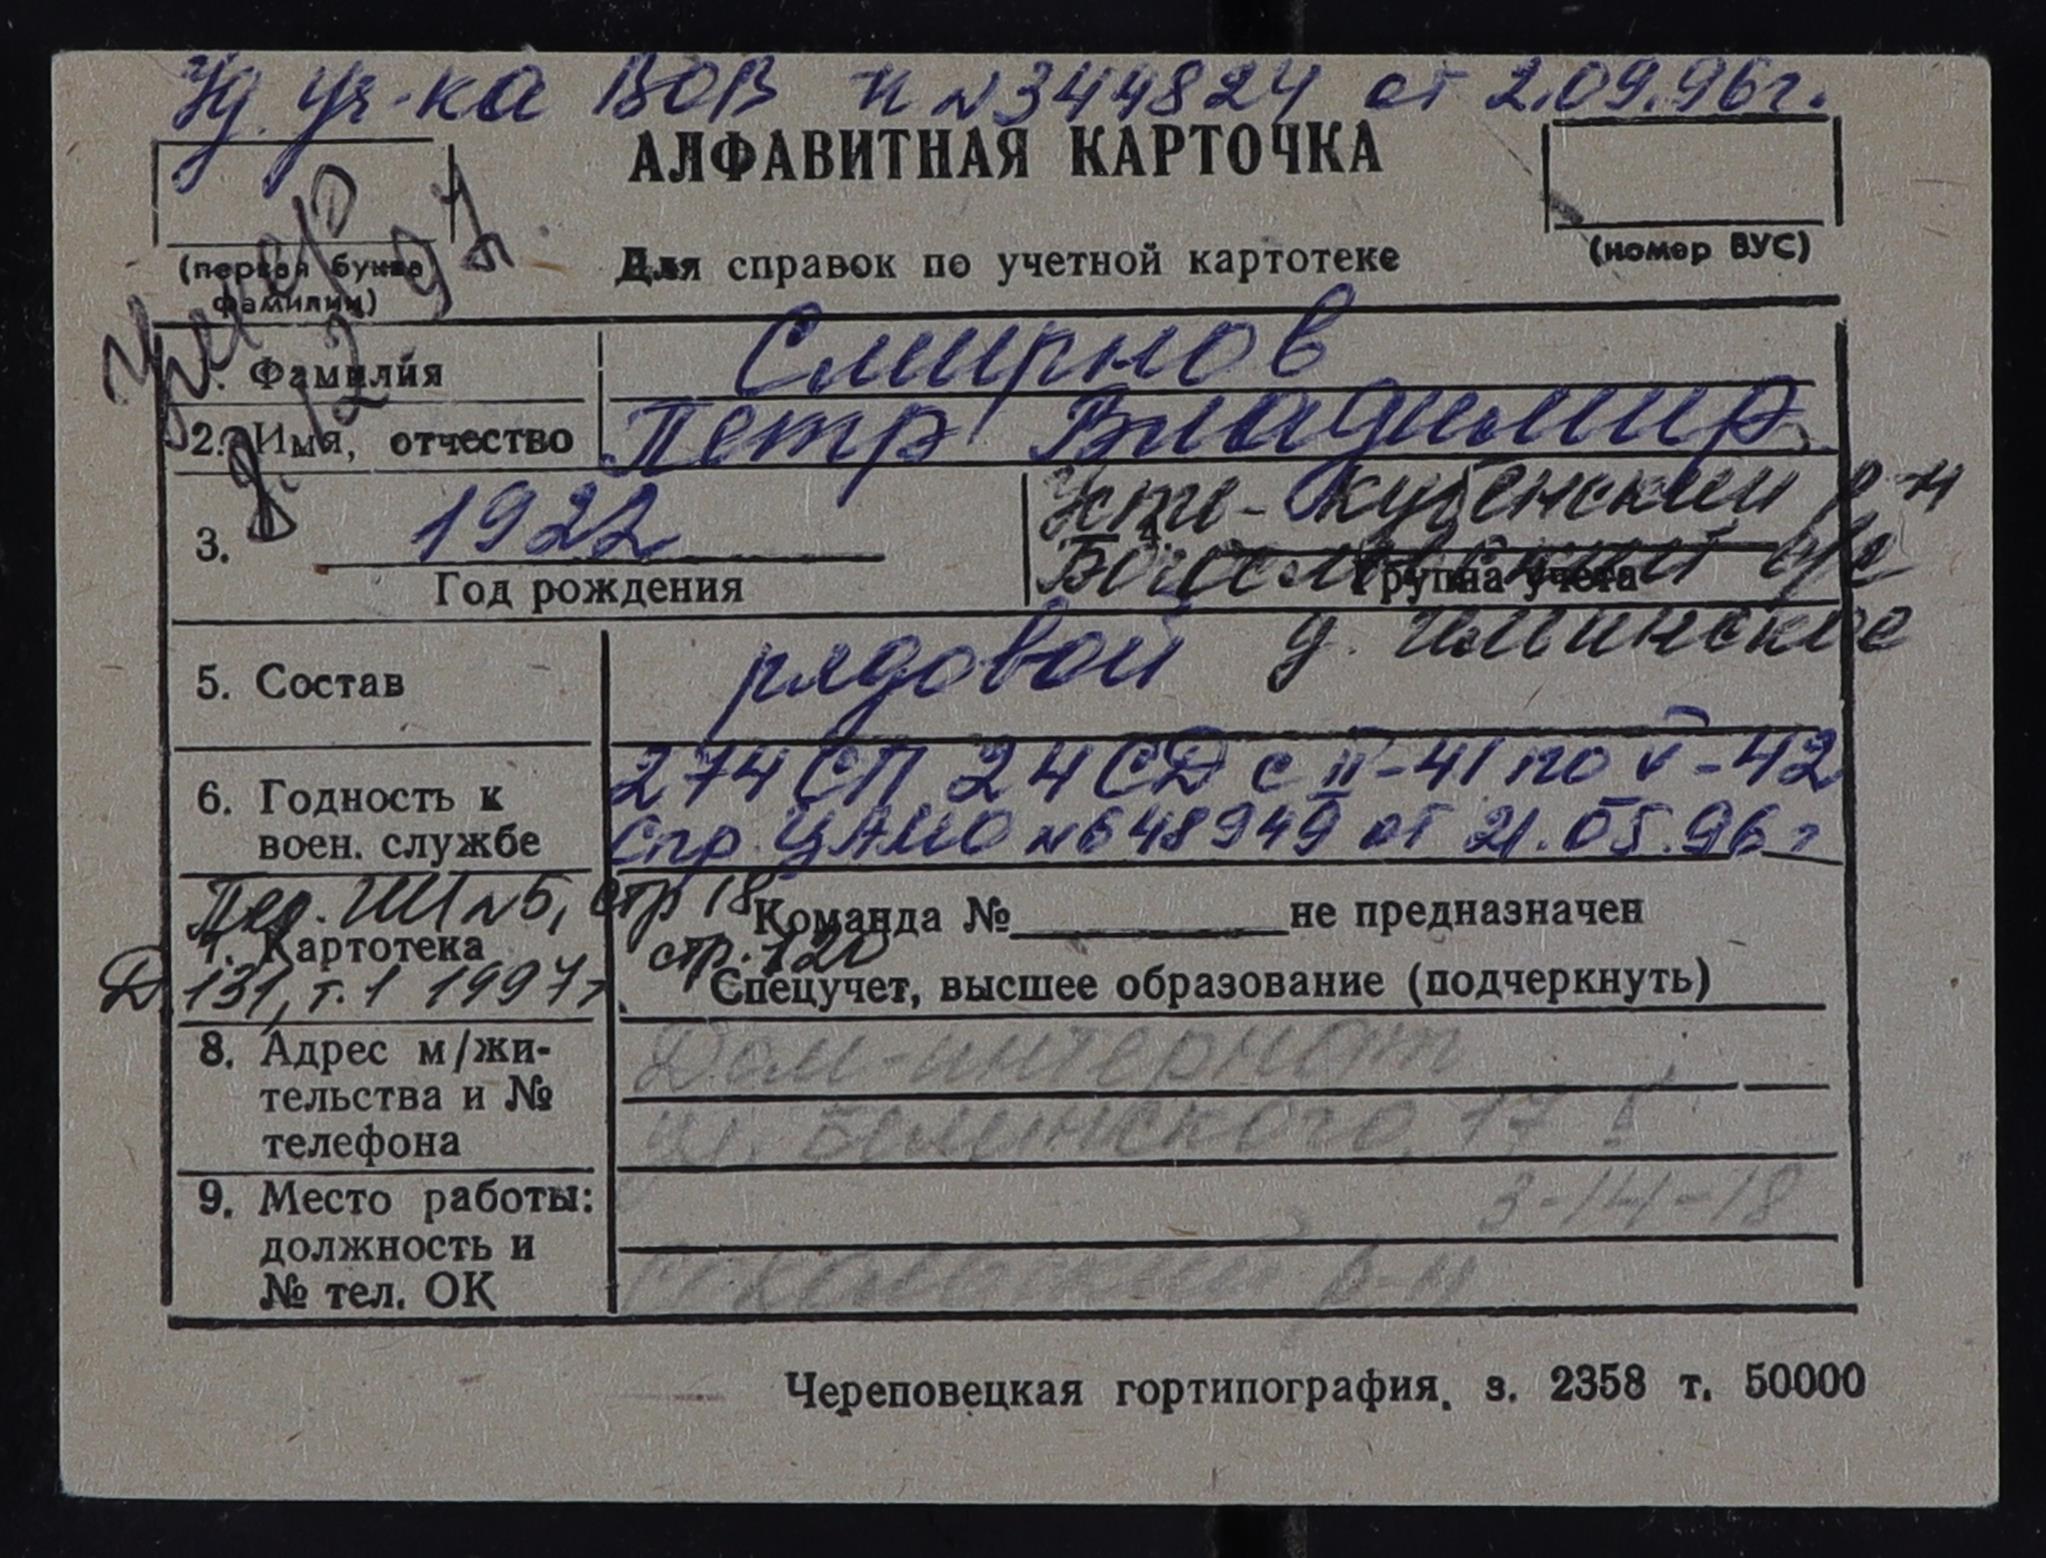 Уд. уч-ка ВОВ И №344824 от 2.09.96г.
АЛФАВИТНАЯ КАРТОЧКА
(первая буква фамилии)
Для справок по учетной картотеке
(номер ВУС)
Умер
8.12.97г.
1. Фамилия Смирнов
2. Имя, отчество Петр Владимир.
3. 1922
Год рождения
Усть-Кубенский р-н
Богословский с/с
Группа учета
д. Ильинское
5. Состав рядовой
6. Годность к воен. службе
274 СП 24 СД с II-41 по V-42
Спр. ЦАМО №648949 от 21.05.96г
Пед. №5, стр 18
Команда № не предназначен
7. Картотека
стр. 120
Д 131, т.1 1997г.
Спецучет, высшее образование (подчеркнуть)
8. Адрес м/жи-
тельства и №
телефона
Дом-интернат
ул. Белинского, 17
3-14-18
9. Место работы:
должность и
№ тел. ОК
Сокольский р-н
Череповецкая гортипография. з. 2358 т. 50000